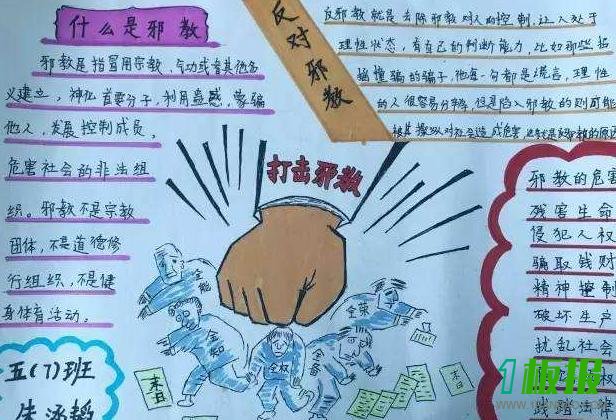 什么是邪教
邪教是指冒用宗教、气功或者其他名
义建立，神化首要分子，利用蛊惑，蒙骗
他人，发展控制成员，
危害社会的非法组
织。邪教不是宗教
团体，不是道德修
行组织，不是健
身体育活动。
五(7)班
反对邪教
反邪教就是去除邪教对人的控制，让人处于
理性状态，有自己的判断能力，比如那些招
摇撞骗的骗子，他每一句都是谎言，理性
的人很容易分辨，但是陷入邪教的则可能
被其操纵对社会造成危害
打击邪教
全能
全知
全权
全备
全荣
末日
末日
邪教的危害
残害生命
侵犯人权
骗取钱财
精神控制
破坏生产
扰乱社会
1板报